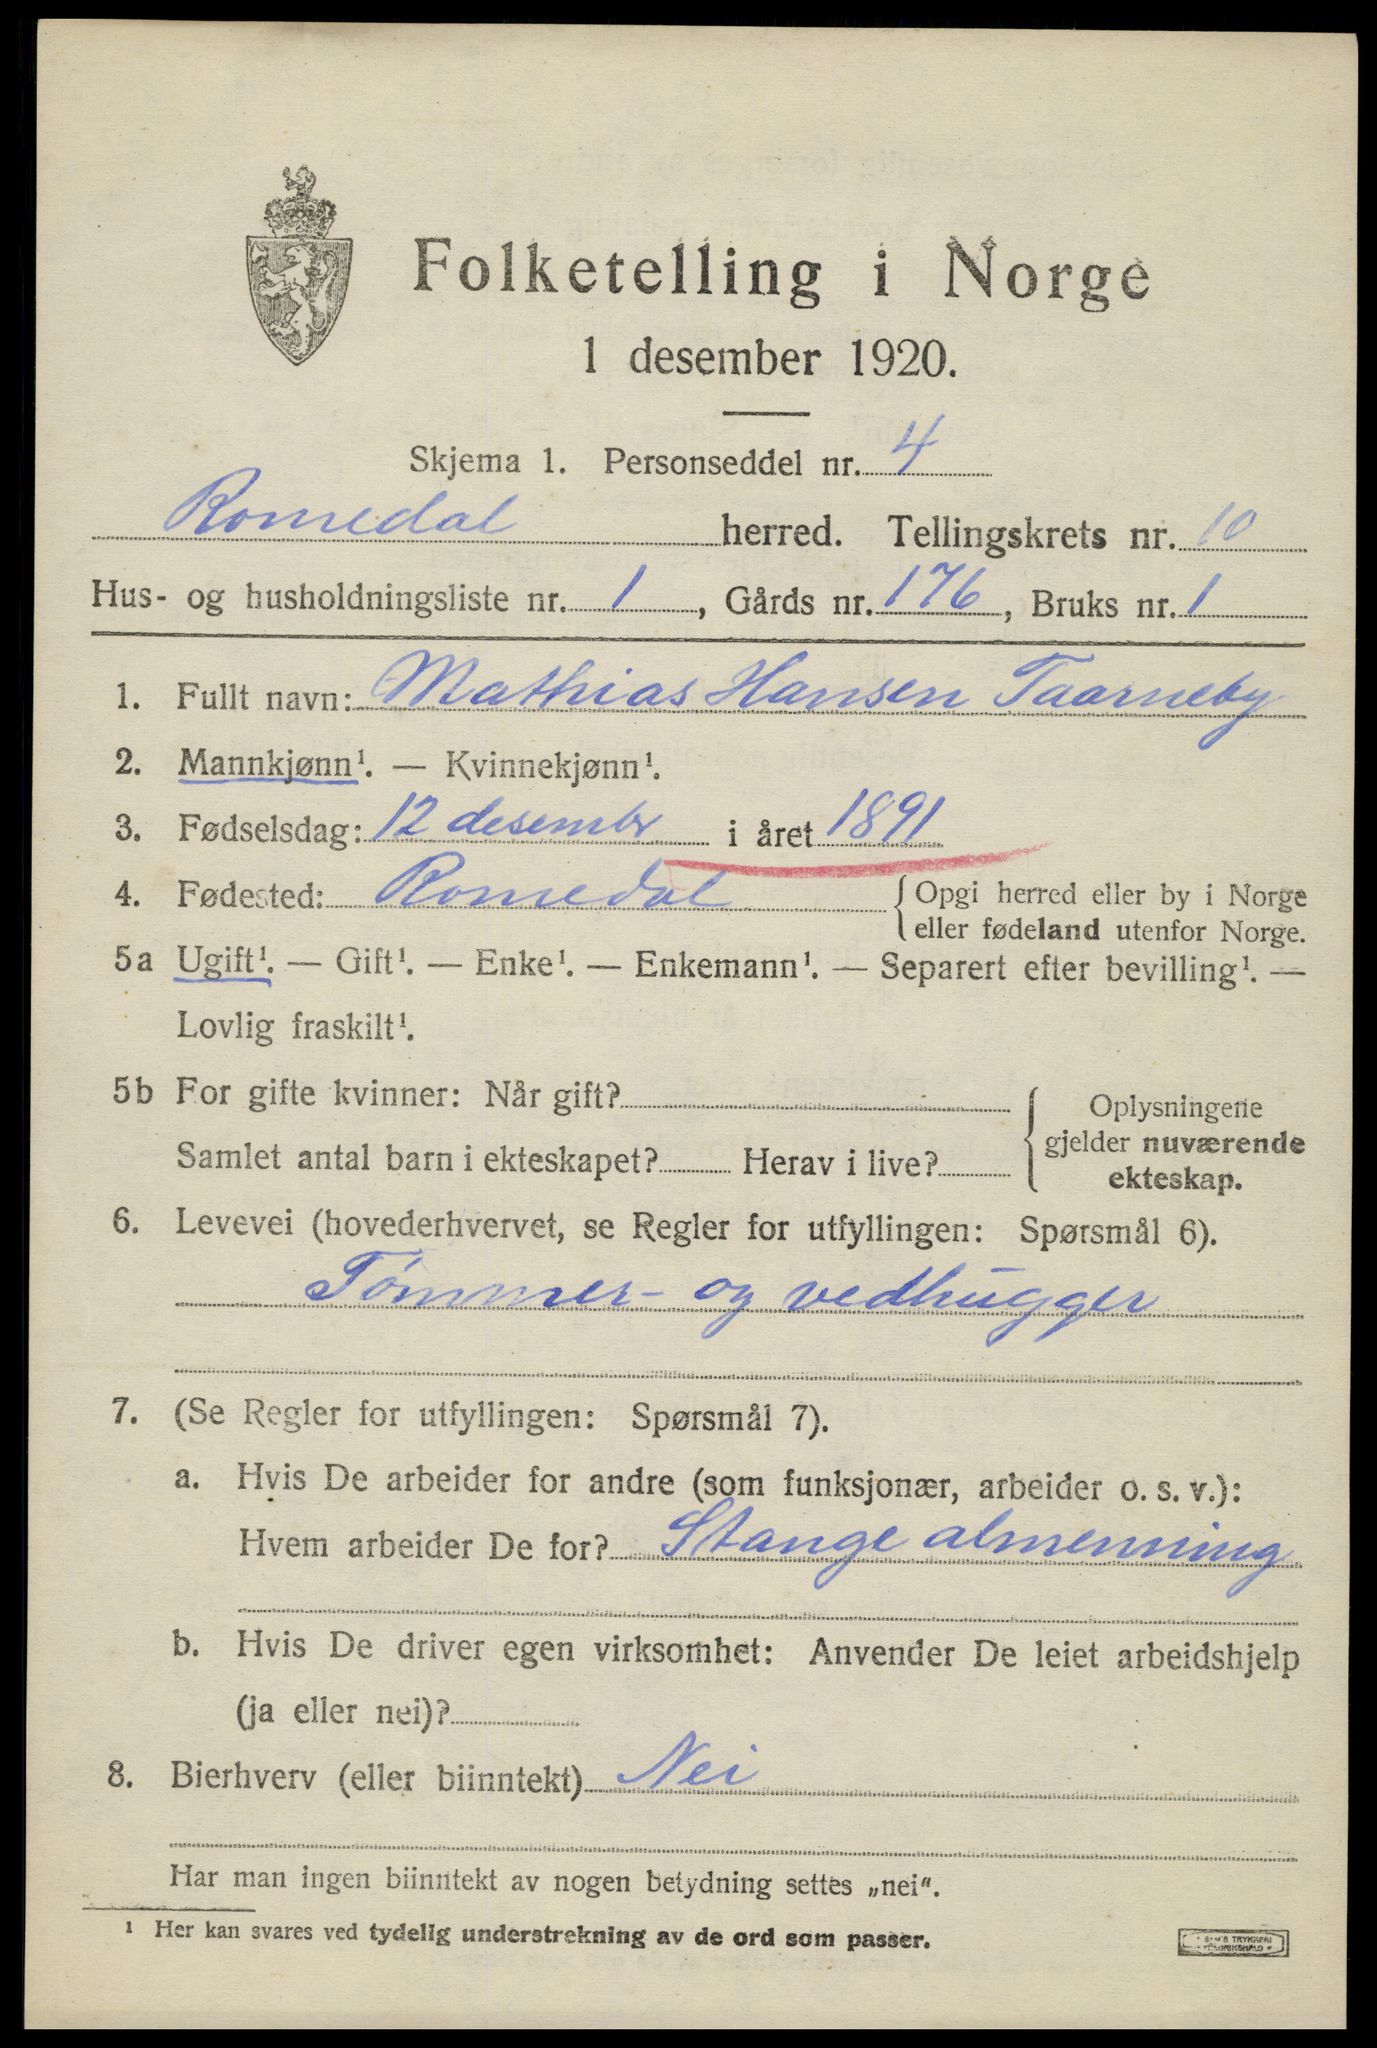 Folketelling i Norge
1 desember 1920.
Skjema 1. Personseddel nr. 4
Romedal herred. Tellingskrets nr. 10
Hus- og husholdningsliste nr. 1, Gårds nr. 176, Bruks nr. 1
1. Fullt navn: Mathias Hansen Taarneby
2. Mannkjønn¹. — Kvinnekjønn¹.
3. Fødselsdag: 12 desembr i året 1891
4. Fødested: Romedal { Opgi herred eller by i Norge
eller fødeland utenfor Norge.
5a Ugift¹. — Gift¹. — Enke¹. — Enkemann¹. — Separert efter bevilling¹. —
Lovlig fraskilt¹.
5b For gifte kvinner: Når gift?
Samlet antal barn i ekteskapet? Herav i live?
Oplysningene
gjelder nuværende
ekteskap.
6. Levevei (hovederhvervet, se Regler for utfyllingen: Spørsmål 6).
Tømmer- og vedhugger
7. (Se Regler for utfyllingen: Spørsmål 7).
a. Hvis De arbeider for andre (som funksjonær, arbeider o. s. v.):
Hvem arbeider De for? Stange almenning
b. Hvis De driver egen virksomhet: Anvender De leiet arbeidshjelp
(ja eller nei)?
8. Bierhverv (eller biinntekt) Nei
Har man ingen biinntekt av nogen betydning settes „nei".
¹ Her kan svares ved tydelig understrekning av de ord som passer.